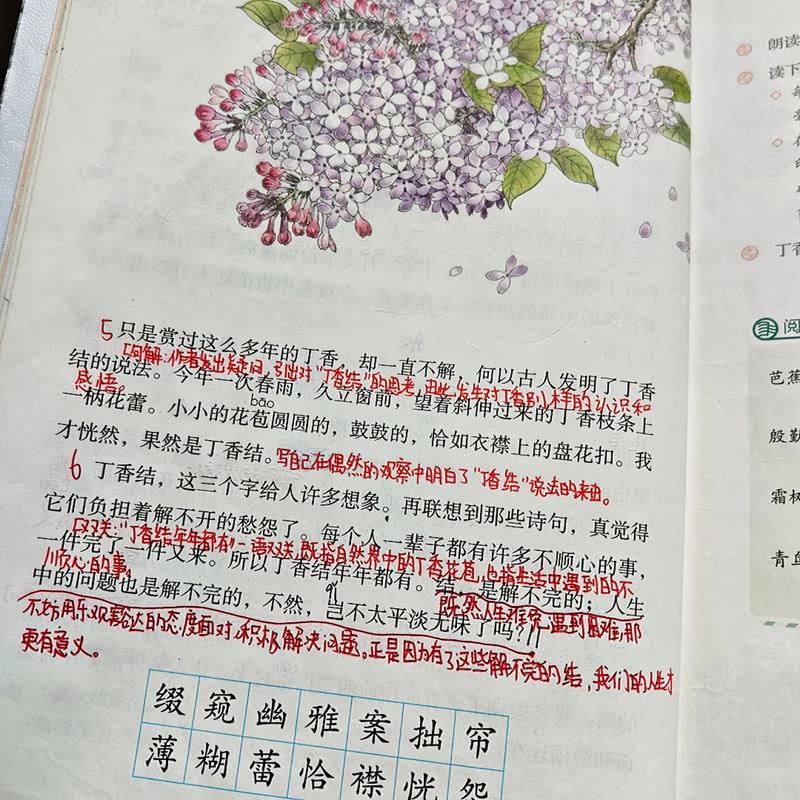 5 只是赏过这么多年的丁香，却一直不解，何以古人发明了丁香
[问解：作者发出疑问，引出对"丁香结"的思考，由此产生对丁香别样的认识和
结的说法。今年一次春雨，久立窗前，望着斜伸过来的丁香枝条上
感悟。
bāo
一柄花蕾。小小的花苞圆圆的，鼓鼓的，恰如衣襟上的盘花扣。我
才恍然，果然是丁香结。写自己在偶然的观察中明白了"丁香结"说法的来由。
6 丁香结，这三个字给人许多想象。再联想到那些诗句，真觉得
它们负担着解不开的愁怨了。每个人一辈子都有许多不顺心的事，
[双关："丁香结年年都有"一语双关，既指自然界中的丁香花苞，也指生活中遇到的不
一件完了一件又来。所以丁香结年年都有。结，是解不完的；人生
顺心的事。
既然人生难免遇到困难，那
中的问题也是解不完的，不然，岂不太平淡无味了吗？
qǐ
不妨用乐观豁达的态度面对，积极解决问题。正是因为有了这些解不完的结，我们的人生才
更有意义。
缀 窥 幽 雅 案 拙 帘
薄 糊 蕾 恰 襟 恍 怨
朗读
读下
丁香
阅
芭蕉
殷勤
霜树
青鸟